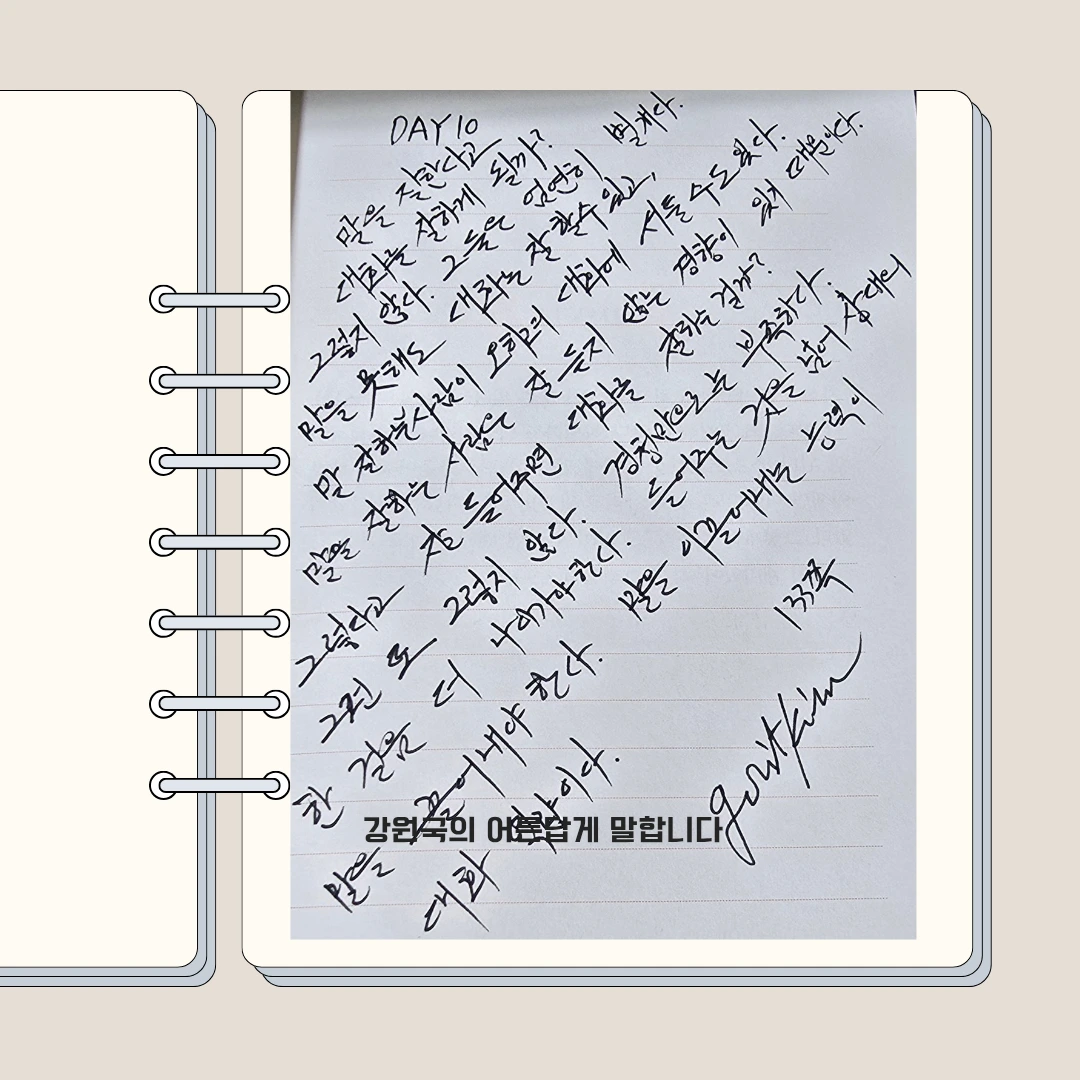 DAY 10
말을 잘한다고
대화를 잘하게 될까?
그렇지 않다. 그 둘은 엄연히 별개다.
말을 못해도 대화는 잘 할수 있고,
말 잘하는 사람이 오히려 대화에 서툴 수도 있다.
말을 잘하는 사람은 잘 듣지 않는 경향이 있기 때문이다.
그렇다고 잘 들어주면 대화를 잘하는 걸까?
그건 또 그렇지 않다. 경청만으로는 부족하다.
한 걸음 더 나아가야 한다. 들어주는 것을 넘어 상대의
말을 이끌어내야 한다. 말을 이끌어내는 능력이
대화 역량이다. 133쪽
강원국의 어른답게 말합니다